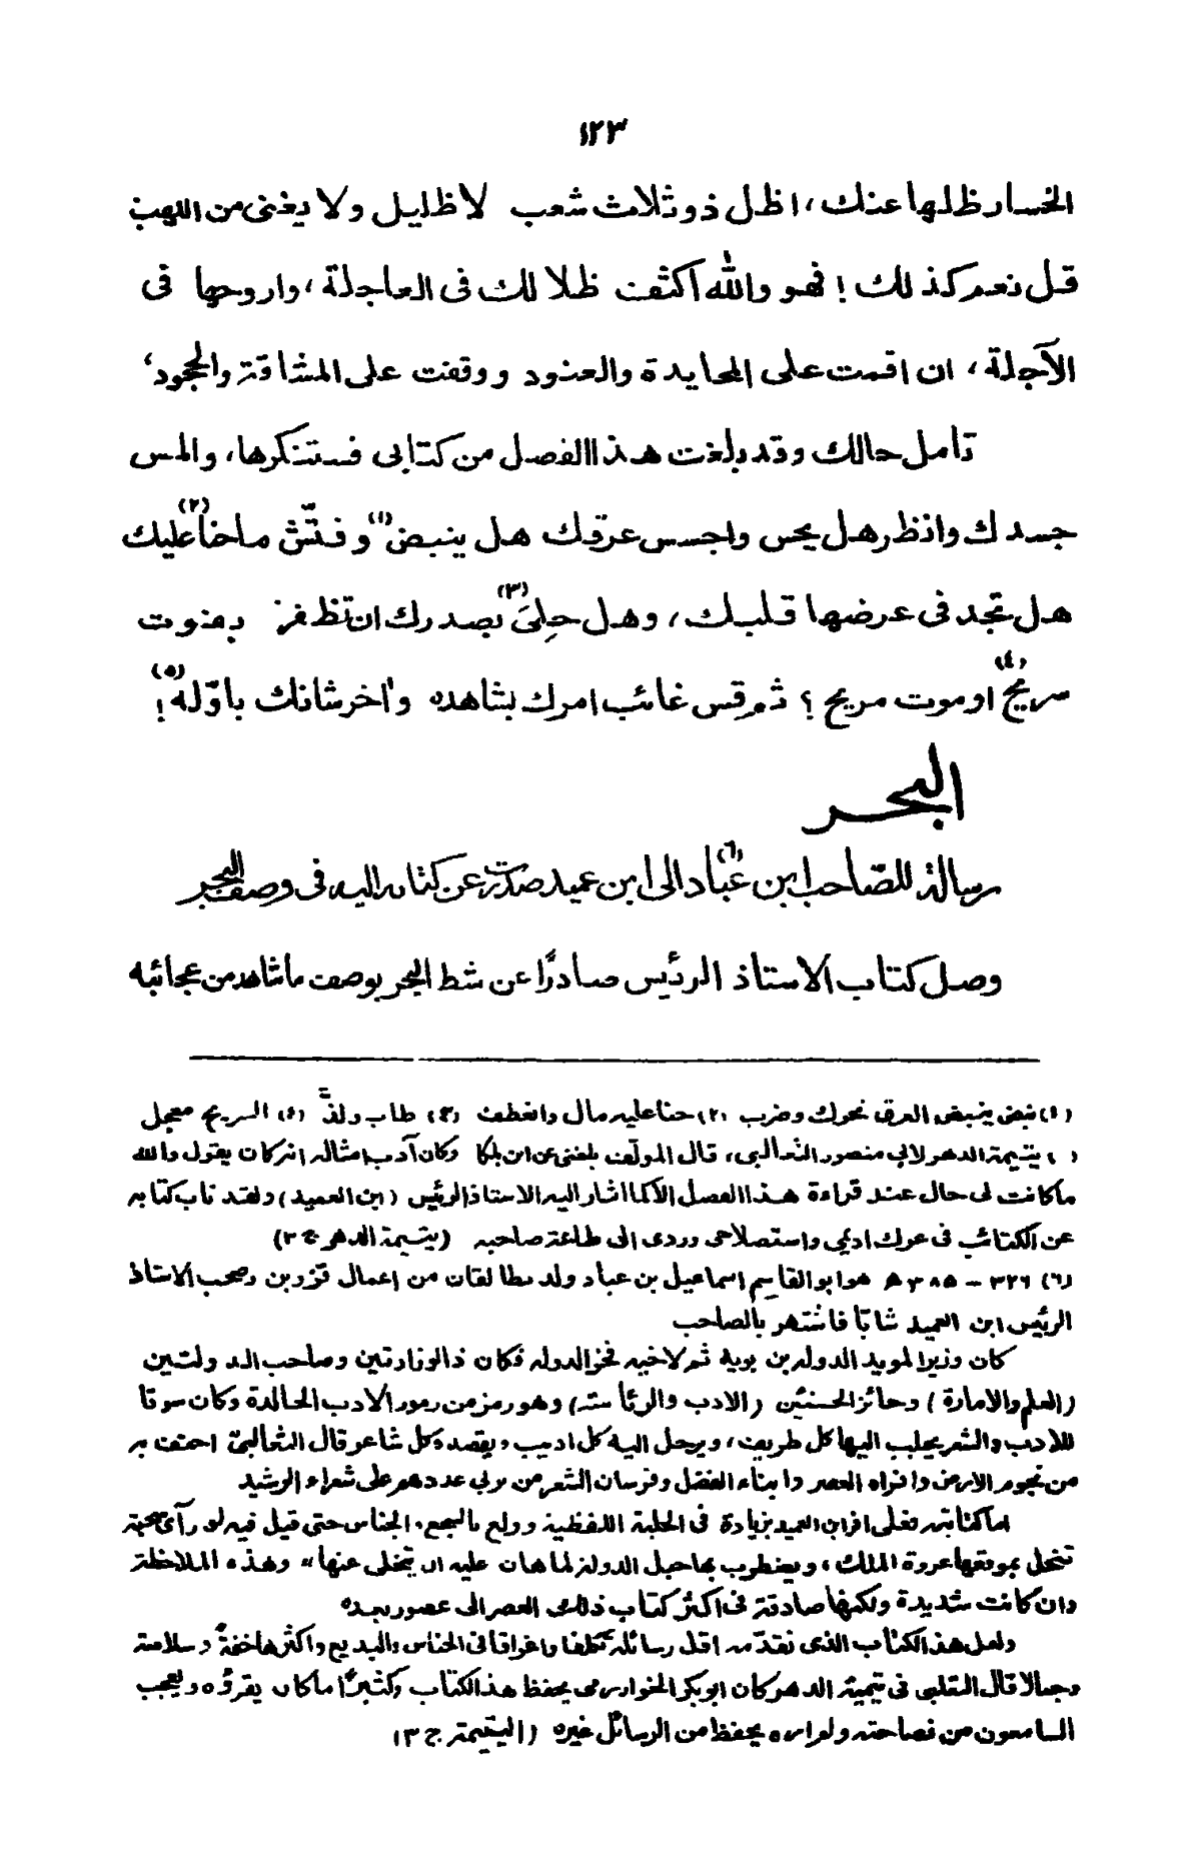 ١٢٣
انحسار ظلها عنك، اظل ذو ثلاث شعب لا ظليل ولا يغنى من اللهب
قل نعم كذلك! فهو والله اكثف ظلا لك فى العاجلة، واروحها فى
الآجلة، ان اقمت على المحايدة والعنود ووقفت على المشاقة والجحود،
تأمل حالك وقد بلغت هذا الفصل من كتابى فستنكرها، والمس
جسدك وانظر هل يحس واجسس عرقك هل ينبض(١) وفتّش ما حنا(٢) عليك
هل تجد فى عرضها قلبك، وهل حلِىَ(٣) بصدرك ان تظفر بموت
سريح(٤) او موت مريح؟ ثم قس غائب امرك بشاهده واٰخر شانك باوّله(٥)!
البحر
رسالة للصّاحب ابن عبّاد(٦) الى ابن عميد صدرت عن كتابه اليه فى وصف البحر
وصل كتاب الاستاذ الرئيس صادرًا عن شط البحر بوصف ما شاهد من عجائبه
(١) نبض ينبض العرق تحرك وضرب (٢) حنا عليه مال وانعطف (٣) طاب ولذّ (٤) السريح معجل
( ) يتيمة الدهر لابي منصور الثعالبى، قال المولّف بلغنى عن ابن بلكا وكان آدب امثاله انه كان يقول والله
ما كانت لى حال عند قراءة هذا الفصل الا كما اشار اليه الاستاذ الرئيس (ابن العميد) ولقد ناب كتابه
عن الكتائب فى عرك اديمي واستصلاحى وردى الى طاعة صاحبه (يتيمة الدهر ج ٣)
(٦) ٣٢٦ – ٣٨٥ ه هو ابو القاسم اسماعيل بن عباد ولد بطالقان من اعمال قزوين وصحب الاستاذ
الرئيس ابن العميد شابّا فاشتهر بالصاحب
كان وزيرا لمويد الدوله بن بويه ثم لاخيه فخر الدوله فكان ذا الوزارتين وصاحب الدولتين
(العلم والامارة) وحائز الحسنيين (الادب والرئاسته) وهو رمز من رموز الادب الخالدة وكان سوقا
للادب والشعر يجلب اليها كل طريف، ويرحل اليه كل اديب ويقصده كل شاعر قال الثعالبىّ احتف به
من نجوم الارض وافراد العصر وابناء الفضل وفرسان الشعر من يربي عددهم على شعراء الرشيد
اما كتابته فعلى اثر ابن العميد بزيادة فى الحلية اللفظية وولع بالسجع، الجناس حتى قيل فيه لو رآى سجعة
تنحل بموقعها عروة الملك، ويضطرب بها حبل الدولة لما هان عليه ان يتخلى عنها" وهذه الملاحظة
وان كانت شديدة ولكنها صادقة فى اكثر كتاب ذلك العصر الى عصور بعده
ولعل هذا الكتاب الذى نقدّمه اقل رسائله تكلفا واغراقا فى الجناس والبديع واكثرها خفةً وسلامة
وجمالا قال الثعلبى فى يتيمة الدهر كان ابوبكر الخوارزمى يحفظ هذا الكتاب وكثيرًا ما كان يقرؤه ويعجب
السامعون من فصاحته ولم اره يحفظ من الرسائل غيره (اليتيمة ج ٣)